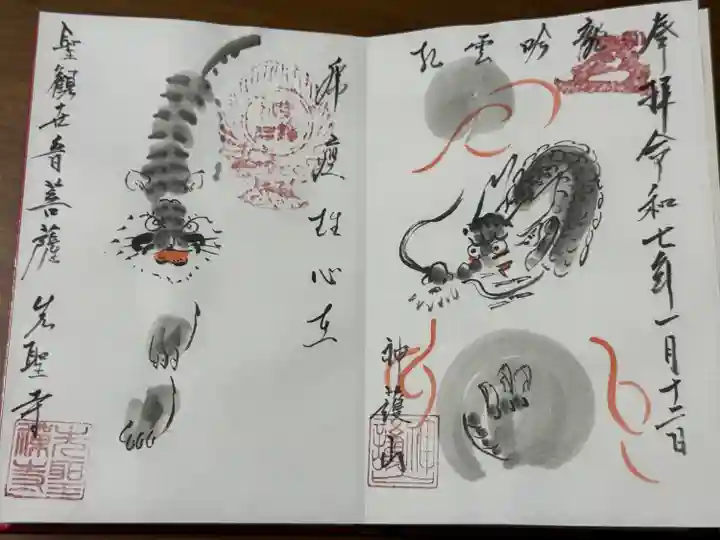 奉拝 令和七年一月十二日
龍吟雲起
神護山
虎痩雄心在
聖觀世音菩薩 先聖寺
先聖禅寺